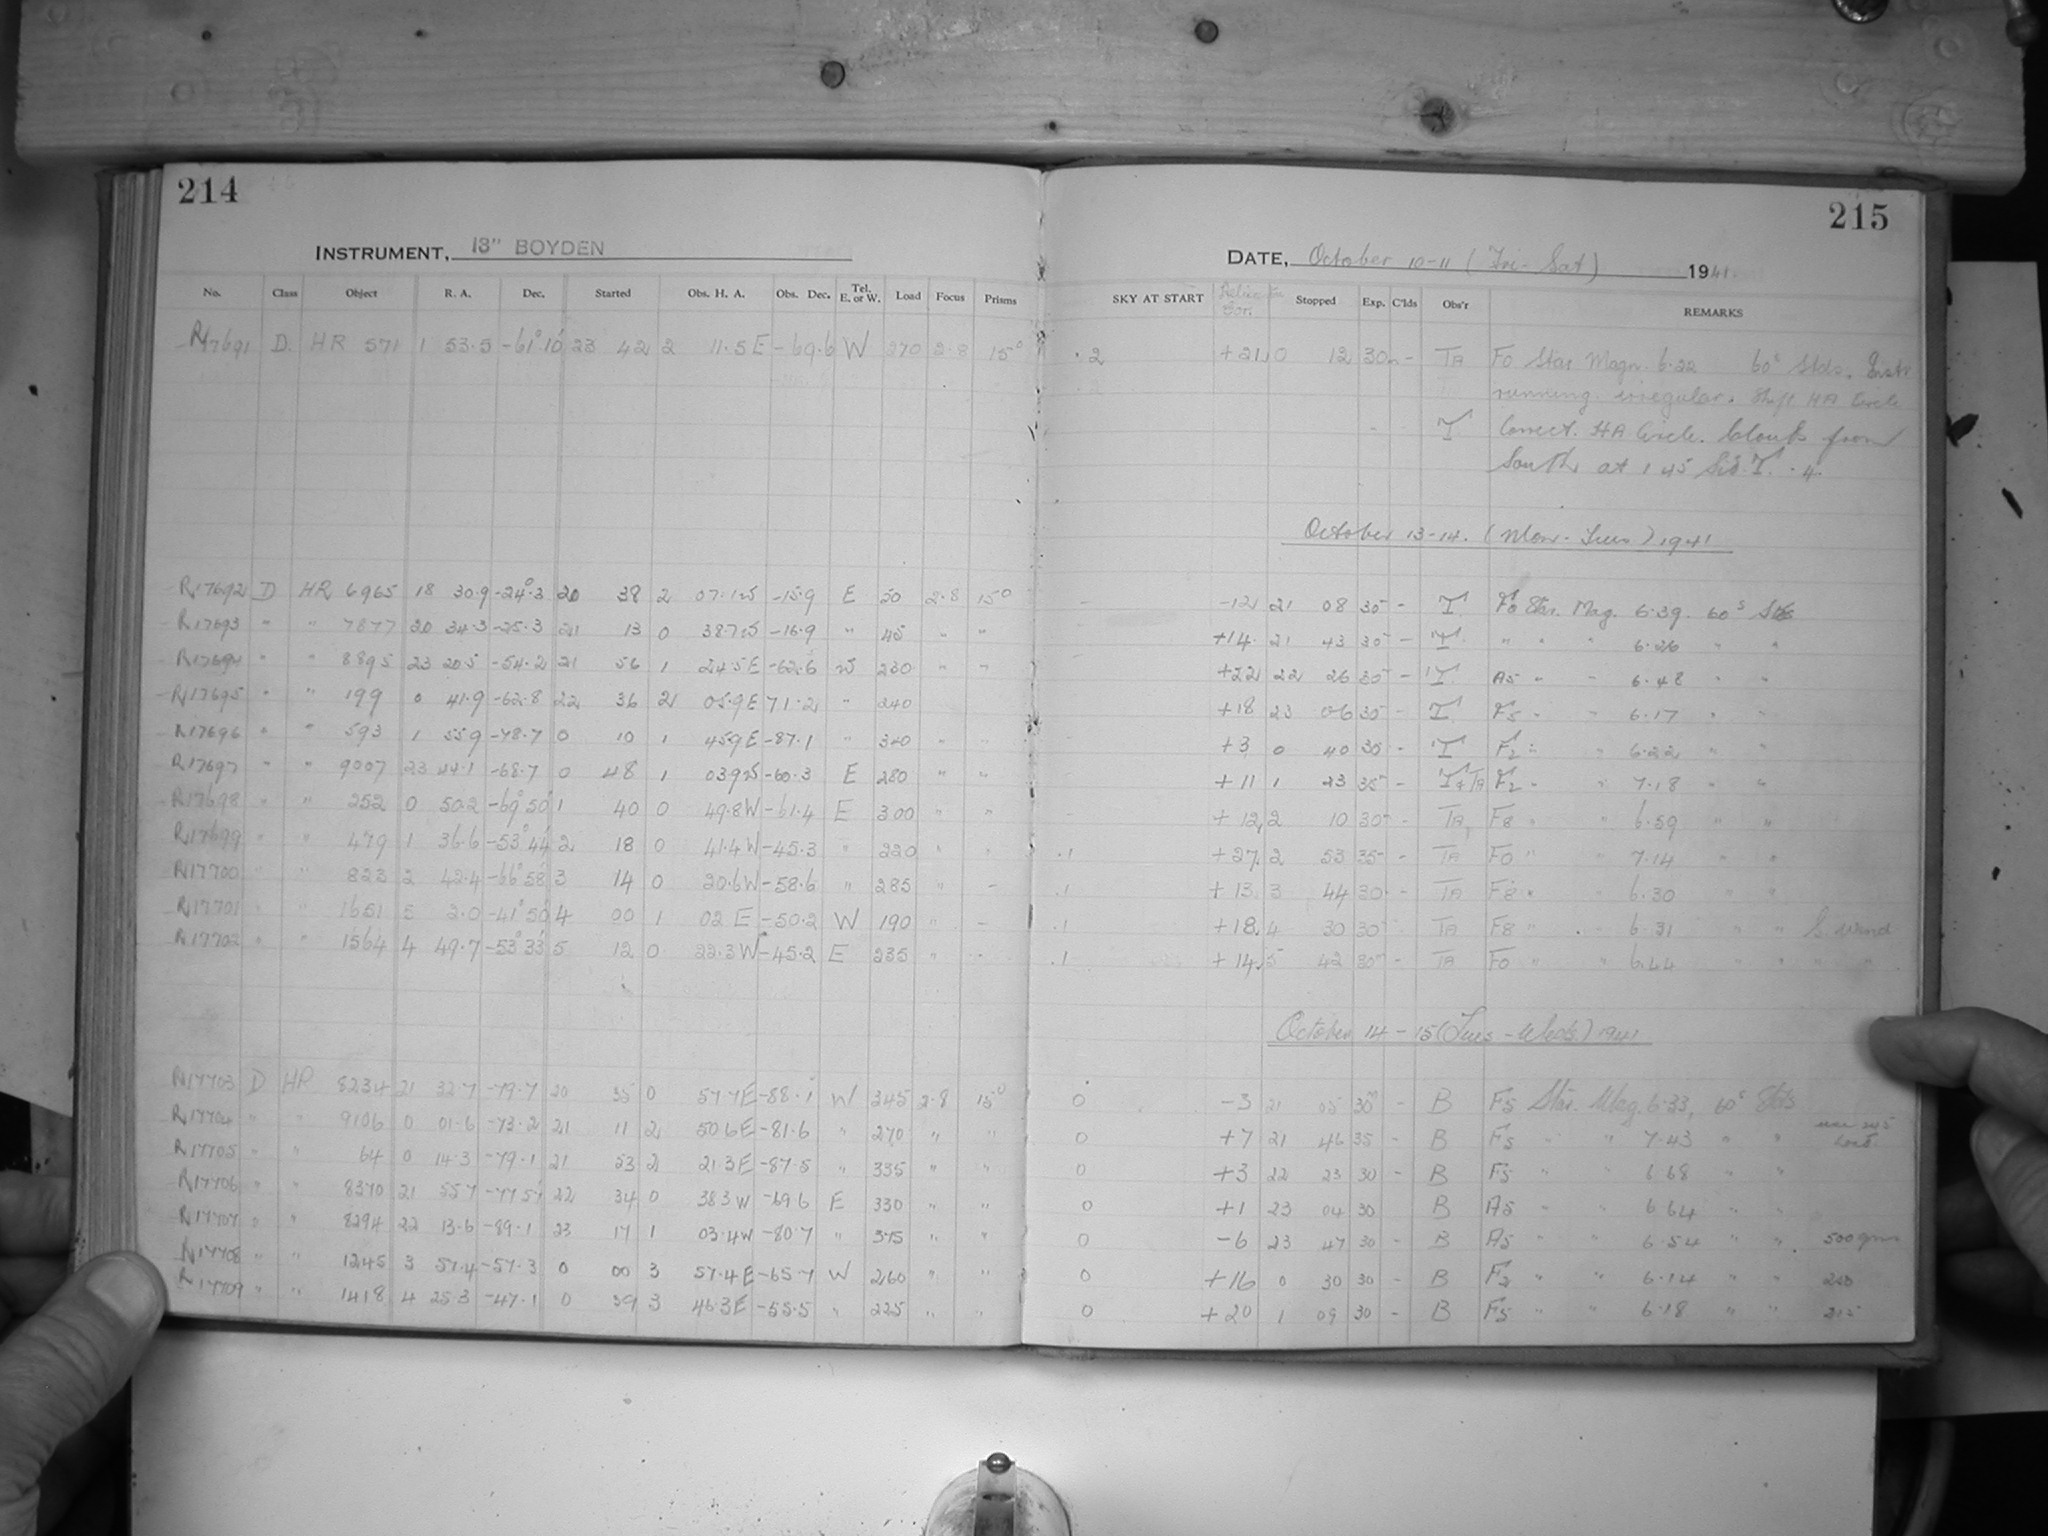 214
215
INSTRUMENT, 13" BOYDEN
DATE, October 10-11 (Fri-Sat) 1941.
No. Class Object R. A. Dec. Started Obs. H. A. Obs. Dec. Tel. E. or W. Load Focus Prisms SKY AT START Stopped Exp. C'lds Obs'r REMARKS
R17691 D. HR 571 1 53.5 -61° 10' 23 42 2 11.5 E -69.6 W 270 2.8 15° .2 +21 0 12 30 - TA F0 Star Magn. 6.22 60s Stds. Instr
running irregular. Shift HA Circle
T Correct. HA Circle. Clouds from
South at 1 45 Sid. T. .4.
October 13-14. (Mon-Tues) 1941
R17692 D HR 6965 18 30.9 -24°.3 20 38 2 07.1W -15.9 E 50 2.8 15° - -12 21 08 30 - T F0 Star. Mag. 6.39. 60s Stds
R17693 " " 7877 20 34.3 -25.3 21 13 0 38.7W -16.9 " 45 " " +14 21 43 30 - T " " " 6.26 " "
R17694 " " 8895 23 20.5 -54.2 21 56 1 24.5E -62.6 W 230 " " +22 22 26 30 - T A5 " " 6.48 " "
R17695 " " 199 0 41.9 -62.8 22 36 2 05.9E 71.2 " 240 +18 23 06 30 - T F5 " " 6.17 " "
R17696 " " 593 1 55.9 -78.7 0 10 1 45.9E -87.1 " 340 " " +3 0 40 30 - T F2 " " 6.22 " "
R17697 " " 9007 23 44.1 -68.7 0 48 1 03.9W -60.3 E 280 " " +11 1 23 35 - T+TA F2 " " 7.18 " "
R17698 " " 252 0 50.2 -69° 50' 1 40 0 49.8W -61.4 E 300 " " +12 2 10 30 - TA F8 " " 6.59 " "
R17699 " " 479 1 36.6 -53° 44' 2 18 0 41.4W -45.3 " 220 " " .1 +27 2 53 35 - TA F0 " " 7.14 " "
R17700 " " 823 2 42.4 -66° 58' 3 14 0 20.6W -58.6 " 285 " - .1 +13 3 44 30 - TA F8 " " 6.30 " "
R17701 " " 1651 5 2.0 -41° 50' 4 00 1 02 E -50.2 W 190 " - .1 +18 4 30 30 - TA F8 " " 6.31 " " S. Wind
R17702 " " 1564 4 49.7 -53° 33' 5 12 0 22.3W -45.2 E 235 " - .1 +14 5 42 30 - TA F0 " " 6.44 " " " "
October 14-15 (Tues-Weds.) 1941
R17703 D HR 8234 21 32.7 -79.7 20 35 0 57.7E -88.1 W 345 2.8 15° 0 -3 21 05 30 - B F5 Star. Mag. 6.33, 60s Stds
R17704 " " 9106 0 01.6 -73.2 21 11 2 50.6E -81.6 " 270 " " 0 +7 21 46 35 - B F5 " " 7.43 " " use 345 load.
R17705 " " 64 0 14.3 -79.1 21 53 2 21.3E -87.5 " 335 " " 0 +3 22 23 30 - B F5 " " 6.68 " "
R17706 " " 8370 21 55.7 -77 51 22 34 0 38.3 W -69.6 E 330 " " 0 +1 23 04 30 B A5 " " 6.64 " "
R17707 " " 8294 22 13.6 -89.1 23 17 1 03.4W -80.7 " 375 " " 0 -6 23 47 30 - B A5 " " 6.54 " " 500 gms
R17708 " " 1245 3 57.4 -57.3 0 00 3 57.4 E -65.7 W 260 " " 0 +16 0 30 30 - B F2 " " 6.14 " " 260
R17709 " " 1418 4 25.3 -47.1 0 39 3 46.3E -55.5 " 225 " " 0 +20 1 09 30 - B F5 " " 6.18 " " 215